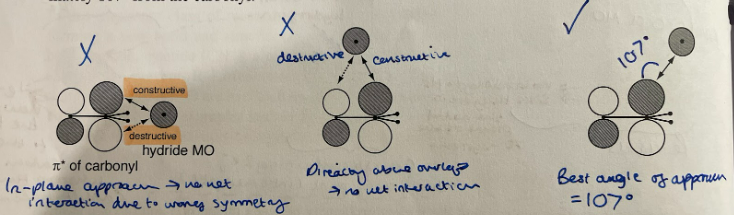 from the carbonyl.
X
X
✓
destructive
constructive
107°
constructive
destructive
hydride MO
π* of carbonyl
In-plane approach → no net
interaction due to wrong symmetry
Directly above overlap
→ no net interaction
Best angle of
= 107°